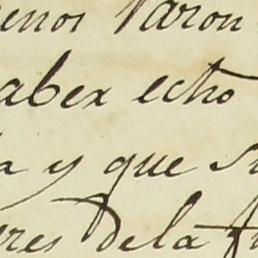 enos Varon
aber echo
a y que su
res dela fu